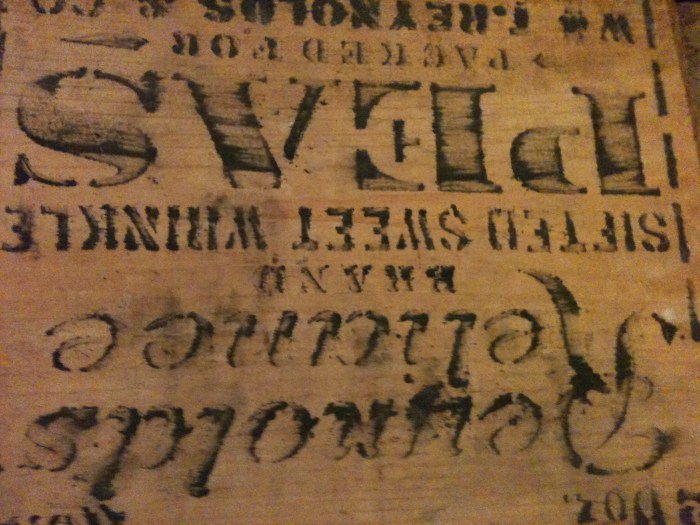 2 Doz.
Reynolds
Reliance
BRAND
SIFTED SWEET WRINKLE
PEAS
PACKED FOR
WM T. REYNOLDS & CO